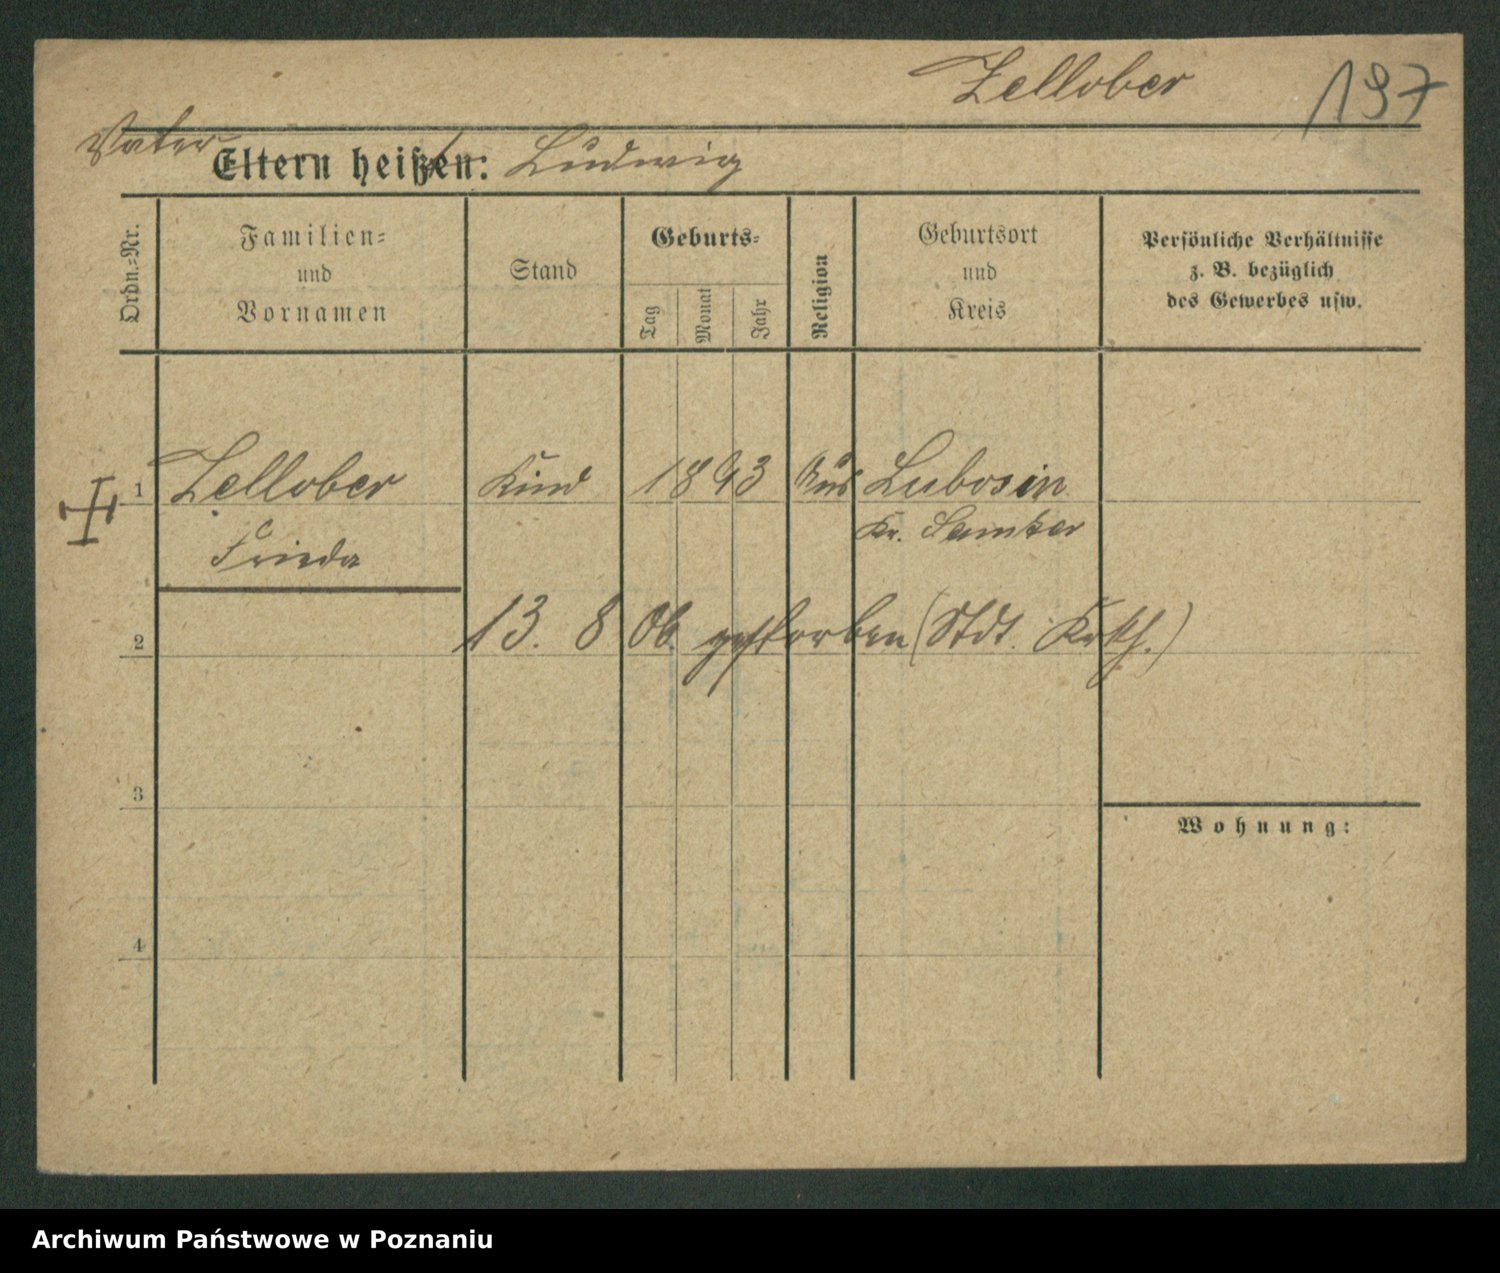 Zellober 197
Vater
Eltern heißen: Ludwig
Ordn.-Nr.
Familien-
und
Vornamen
Stand
Geburts-
Tag
Monat
Jahr
Religion
Geburtsort
und
Kreis
Persönliche Verhältnisse
z. B. bezüglich
des Gewerbes usw.
1 Zellober Kind 1893 Lubosin
Frieda Kr. Samter
2 13. 8 06. gestorben (Stdt. Krkh.)
3
Wohnung:
4
Archiwum Państwowe w Poznaniu